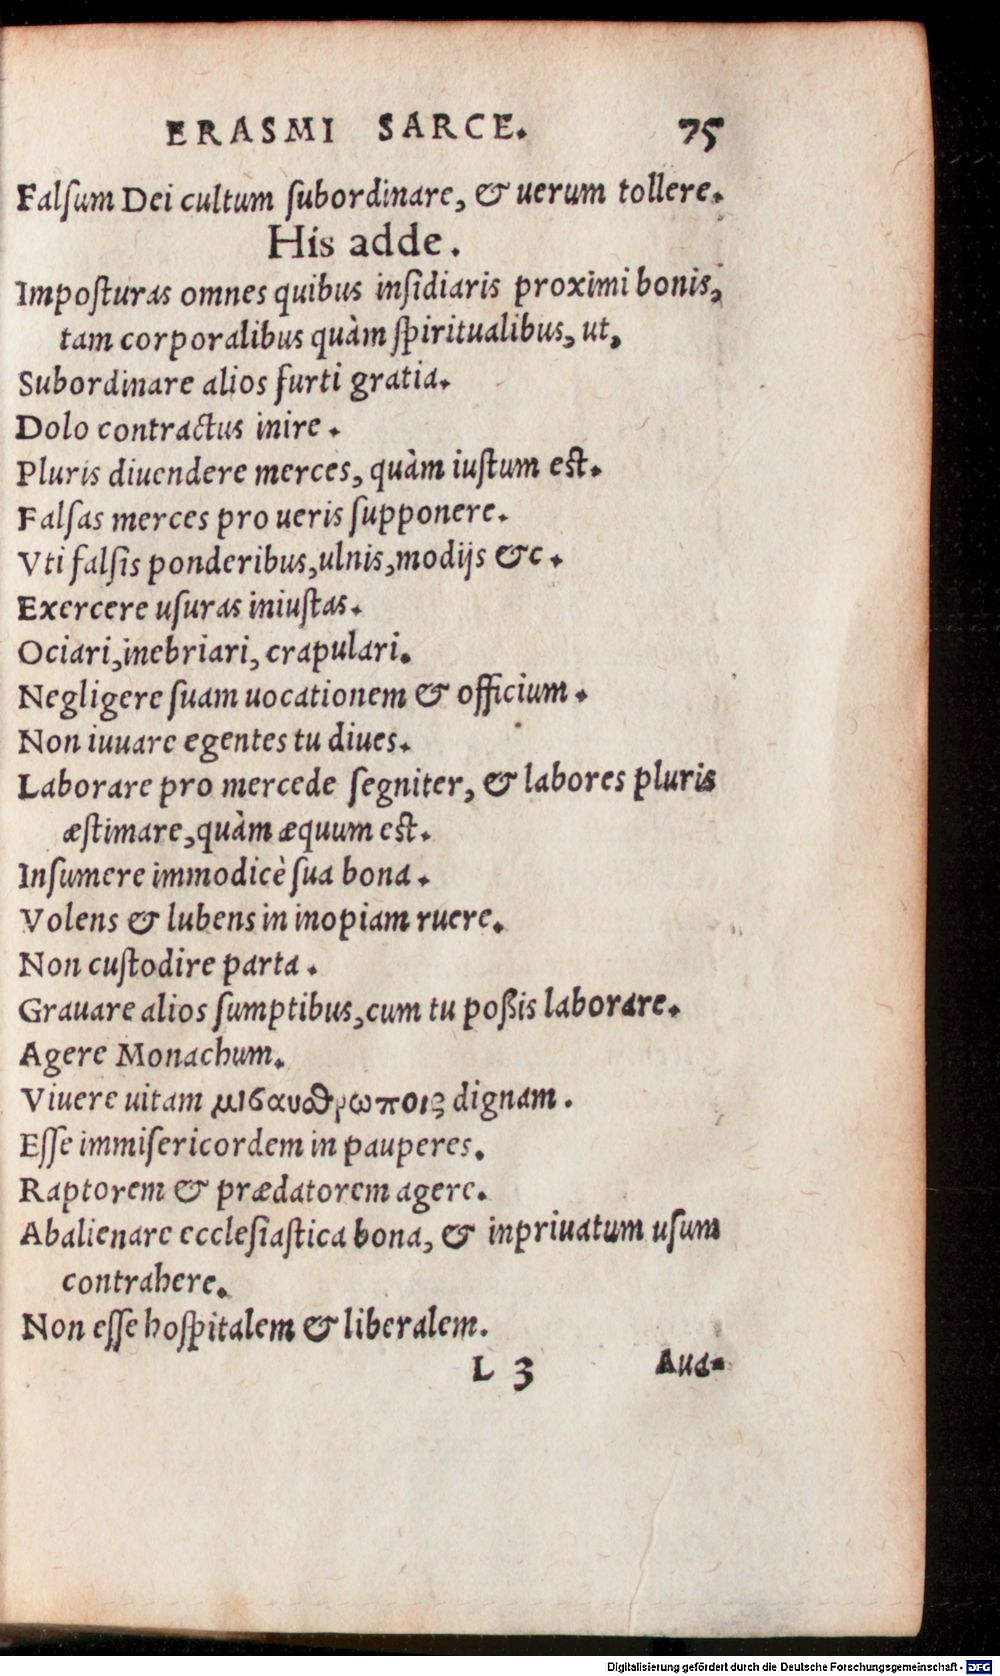 ERASMI SARCE. 75
Falſum Dei cultum ſubordinare, & uerum tollere.
His adde.
Impoſturas omnes quibus inſidiaris proximi bonis,
tam corporalibus quàm ſpiritualibus, ut,
Subordinare alios furti gratia.
Dolo contractus inire.
Pluris diuendere merces, quàm iuſtum eſt.
Falſas merces pro ueris ſupponere.
Vti falſis ponderibus, ulnis, modijs &c.
Exercere uſuras iniuſtas.
Ociari, inebriari, crapulari.
Negligere ſuam uocationem & officium.
Non iuuare egentes tu diues.
Laborare pro mercede ſegniter, & labores pluris
æſtimare, quàm æquum eſt.
Inſumere immodicè ſua bona.
Volens & lubens in inopiam ruere.
Non cuſtodire parta.
Grauare alios ſumptibus, cum tu poßis laborare.
Agere Monachum.
Viuere uitam μισανθρώποις dignam.
Eſſe immiſericordem in pauperes.
Raptorem & prædatorem agere.
Abalienare eccleſiaſtica bona, & in priuatum uſum
contrahere.
Non eſſe hoſpitalem & liberalem.
L 3 Aua-
Digitalisierung gefördert durch die Deutsche Forschungsgemeinschaft - DFG